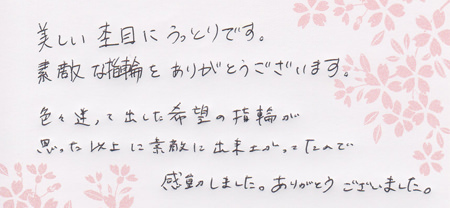 美しい杢目にうっとりです。
素敵な指輪をありがとうございます。
色々迷って出した希望の指輪が
思った以上に素敵に出来上がってたので
感動しました。ありがとうございました。